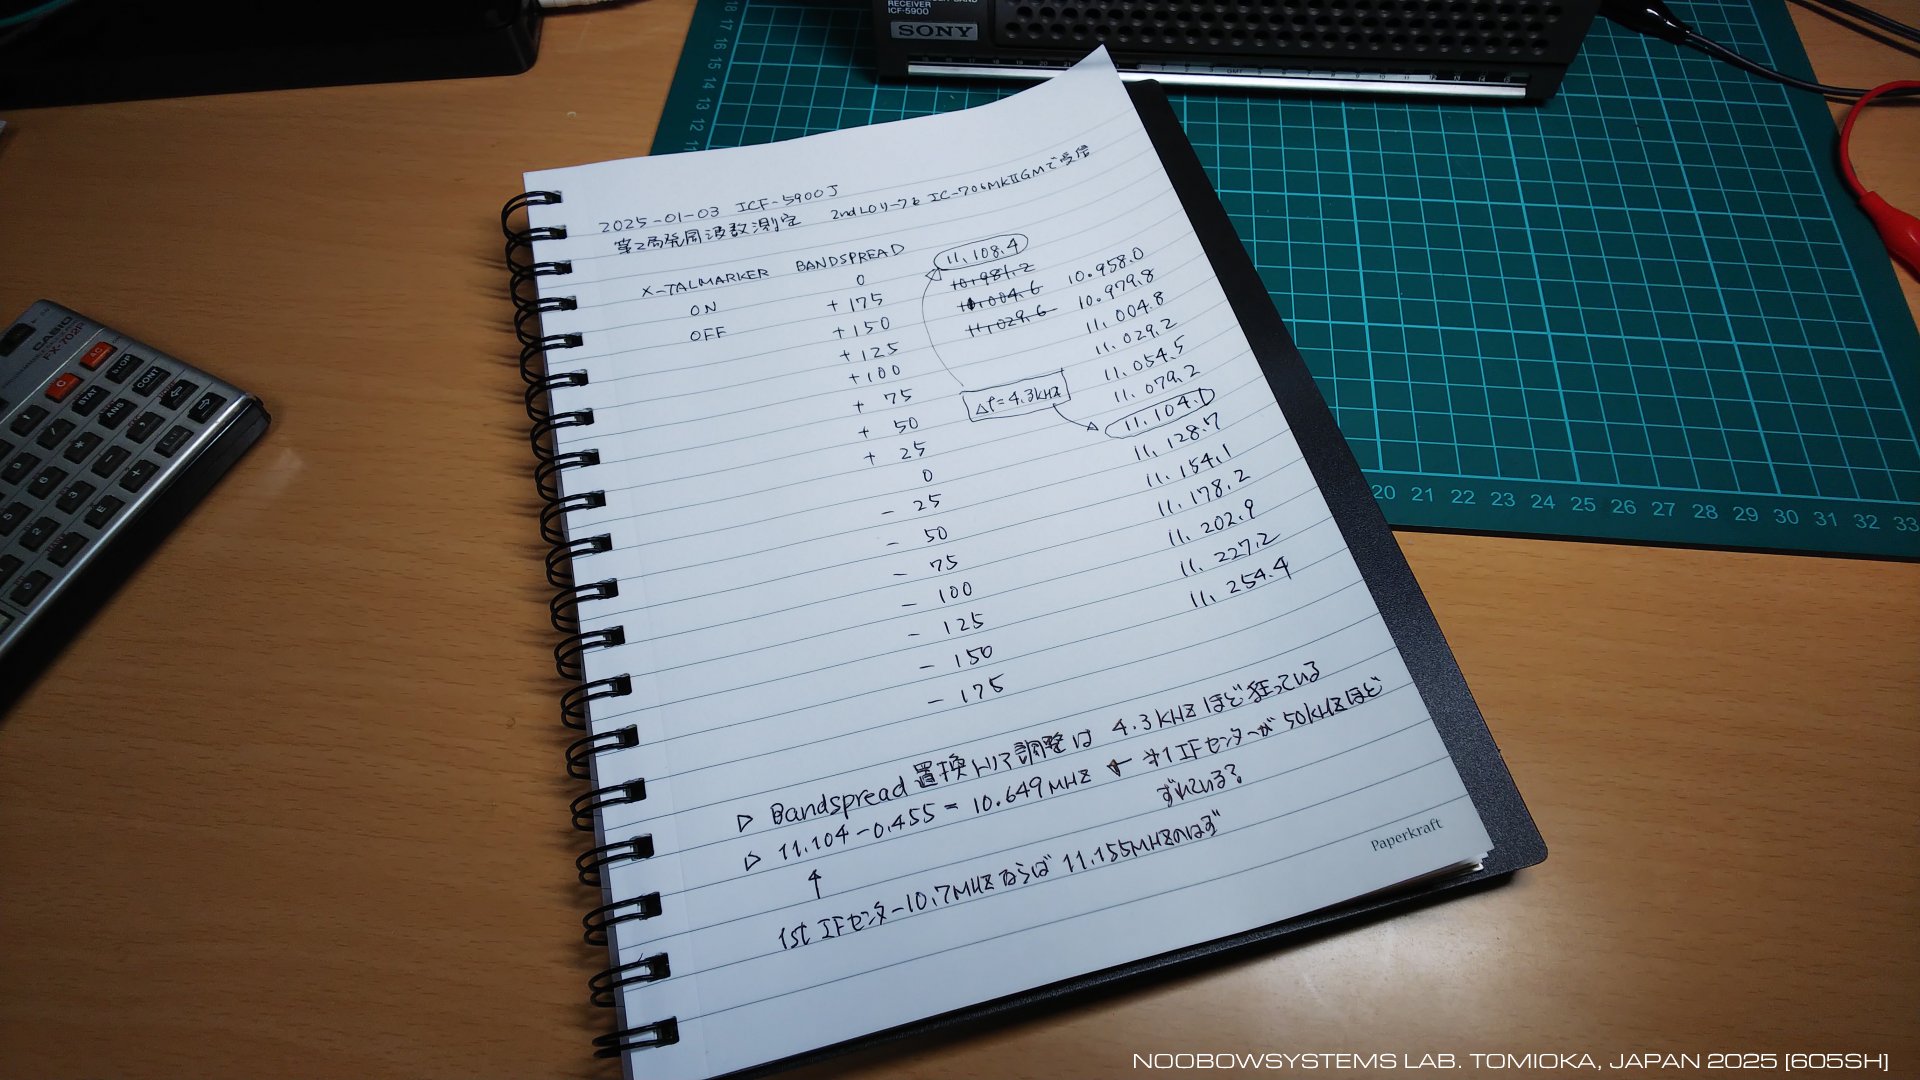 RECEIVER
ICF-5900
SONY
18 17 16 15 14 13 12 11
2025-01-03 ICF-5900J
第2局発周波数測定 2nd LOリークを IC-706MKIIGMで受信
X-TALMARKER BANDSPREAD
ON 0 11.108.4
OFF +175 10.981.2 10.958.0
+150 11.004.6 10.979.8
+125 11.029.6 11.004.8
+100 11.029.2
+ 75 11.054.5
+ 50 11.079.2
+ 25 11.104.0
0 11.128.7
- 25 11.154.1
- 50 11.178.2
- 75 11.202.9
- 100 11.227.2
- 125 11.254.4
- 150
- 175
Δf=4.3kHz
▷ Bandspread 置換トリマ調整は 4.3KHzほど狂っている
▷ 11.104-0.455 = 10.649MHz ← 第1IFセンターが50kHzほど
ずれている?
↑
1st IFセンター10.7MHzならば 11.155MHzのはず
Paperkraft
CASIO
FX-702P
AC
C
STOP
STAT
CONT
ANS
20 21 22 23 24 25 26 27 28 29 30 31 32 33
NOOBOWSYSTEMS LAB. TOMIOKA, JAPAN 2025 [605SH]